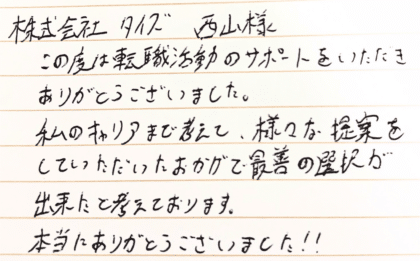 株式会社 タイズ 西山様
この度は転職活動のサポートをいただき
ありがとうございました。
私のキャリアまで考えて、様々な提案を
していただいたおかげで最善の選択が
出来たと考えております。
本当にありがとうございました!!